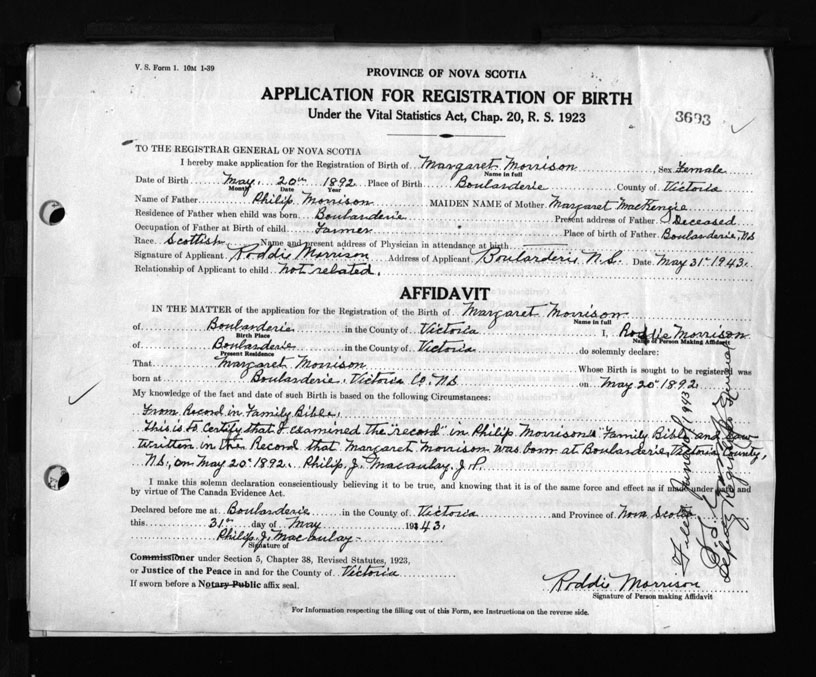 V. S. Form 1. 10M 1-39
PROVINCE OF NOVA SCOTIA
APPLICATION FOR REGISTRATION OF BIRTH
Under the Vital Statistics Act, Chap. 20, R. S. 1923
3693
TO THE REGISTRAR GENERAL OF NOVA SCOTIA
I hereby make application for the Registration of Birth of Margaret Morrison, Sex Female
Name in full
Date of Birth May 20th 1892 Place of Birth Boularderie County of Victoria
Month Date Year
Name of Father Philip Morrison MAIDEN NAME of Mother Margaret MacKenzie
Residence of Father when child was born Boularderie Present address of Father Deceased
Occupation of Father at Birth of child Farmer Place of birth of Father Boularderie, N.S
Race Scottish Name and present address of Physician in attendance at birth
Signature of Applicant Roddie Morrison Address of Applicant Boularderie N.S. Date May 31st 1943
Relationship of Applicant to child not related.
AFFIDAVIT
IN THE MATTER of the application for the Registration of the Birth of Margaret Morrison
Name in full
of Boularderie in the County of Victoria I, Roddie Morrison
Birth Place Name of Person Making Affidavit
of Boularderie in the County of Victoria do solemnly declare:
Present Residence
That Margaret Morrison Whose Birth is sought to be registered was
born at Boularderie, Victoria Co. N.S on May 20th 1892
My knowledge of the fact and date of such Birth is based on the following Circumstances:
From Record in Family Bible,
This is to certify that I examined the "record" in Philip Morrison's "Family Bible and saw
written in the Record that Margaret Morrison was born at Boularderie, Victoria County,
N.S., on May 20th 1892. Philip J. Macaulay, J.P.
I make this solemn declaration conscientiously believing it to be true, and knowing that it is of the same force and effect as if made under oath and
by virtue of The Canada Evidence Act.
Declared before me at Boularderie in the County of Victoria and Province of Nova Scotia
this 31st day of May 1943.
Philip J. Macaulay
Signature of
Commissioner under Section 5, Chapter 38, Revised Statutes, 1923,
or Justice of the Peace in and for the County of Victoria
If sworn before a Notary Public affix seal.
Roddie Morrison
Signature of Person making Affidavit
For Information respecting the filling out of this Form, see Instructions on the reverse side.
Filed June
Deputy Registrar General